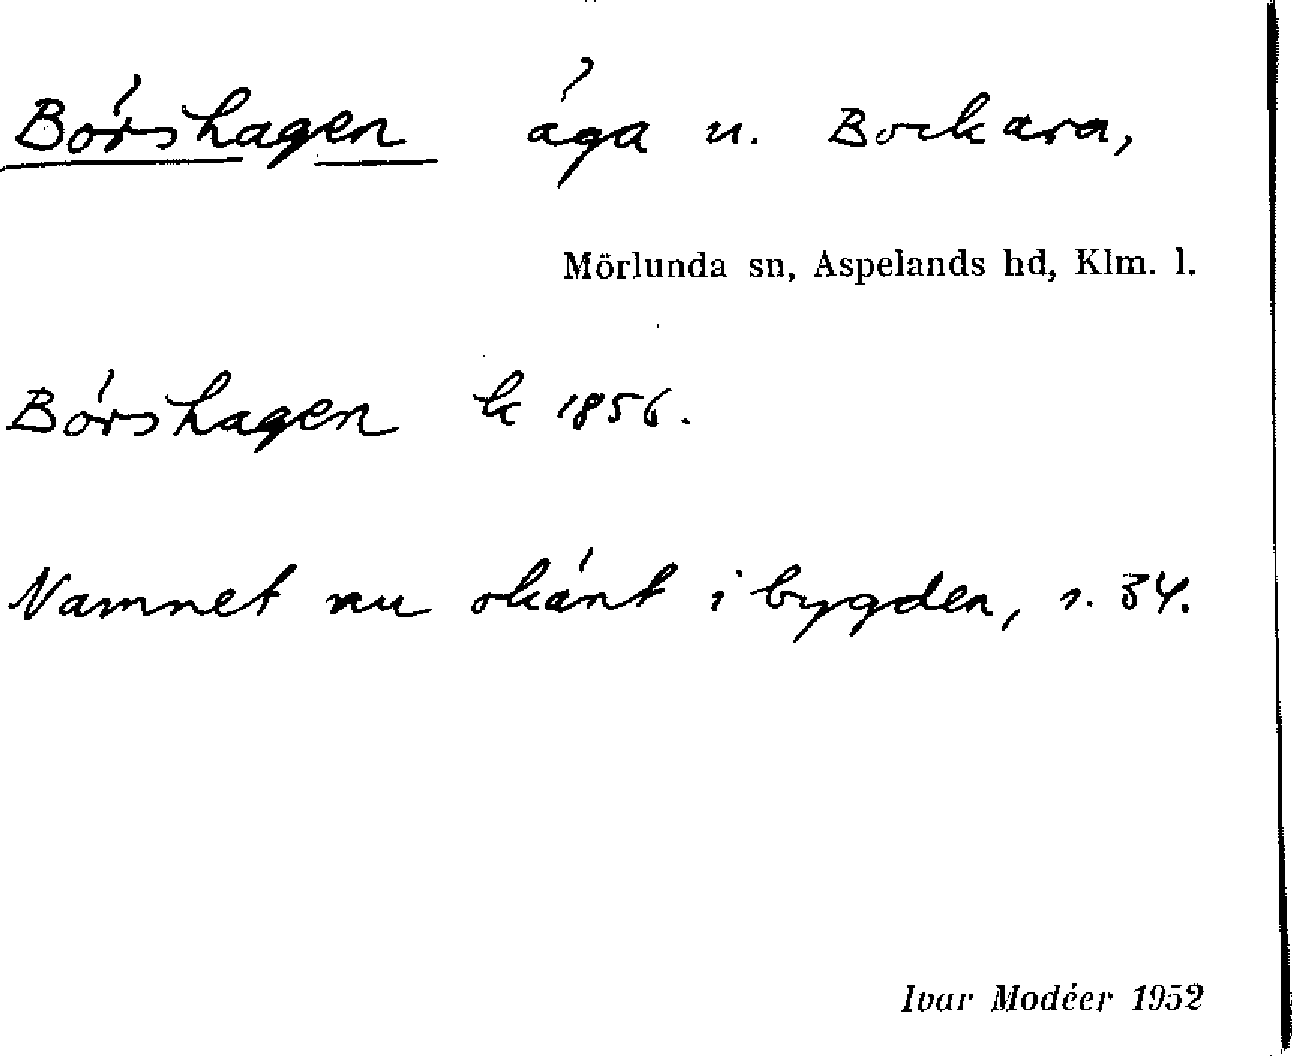 Börshagen äga u. Bockara,
Mörlunda sn, Aspelands hd, Klm. l.
Börshagen k 1856.
Namnet nu okänt i bygden, s. 34.
Ivar Modéer 1952